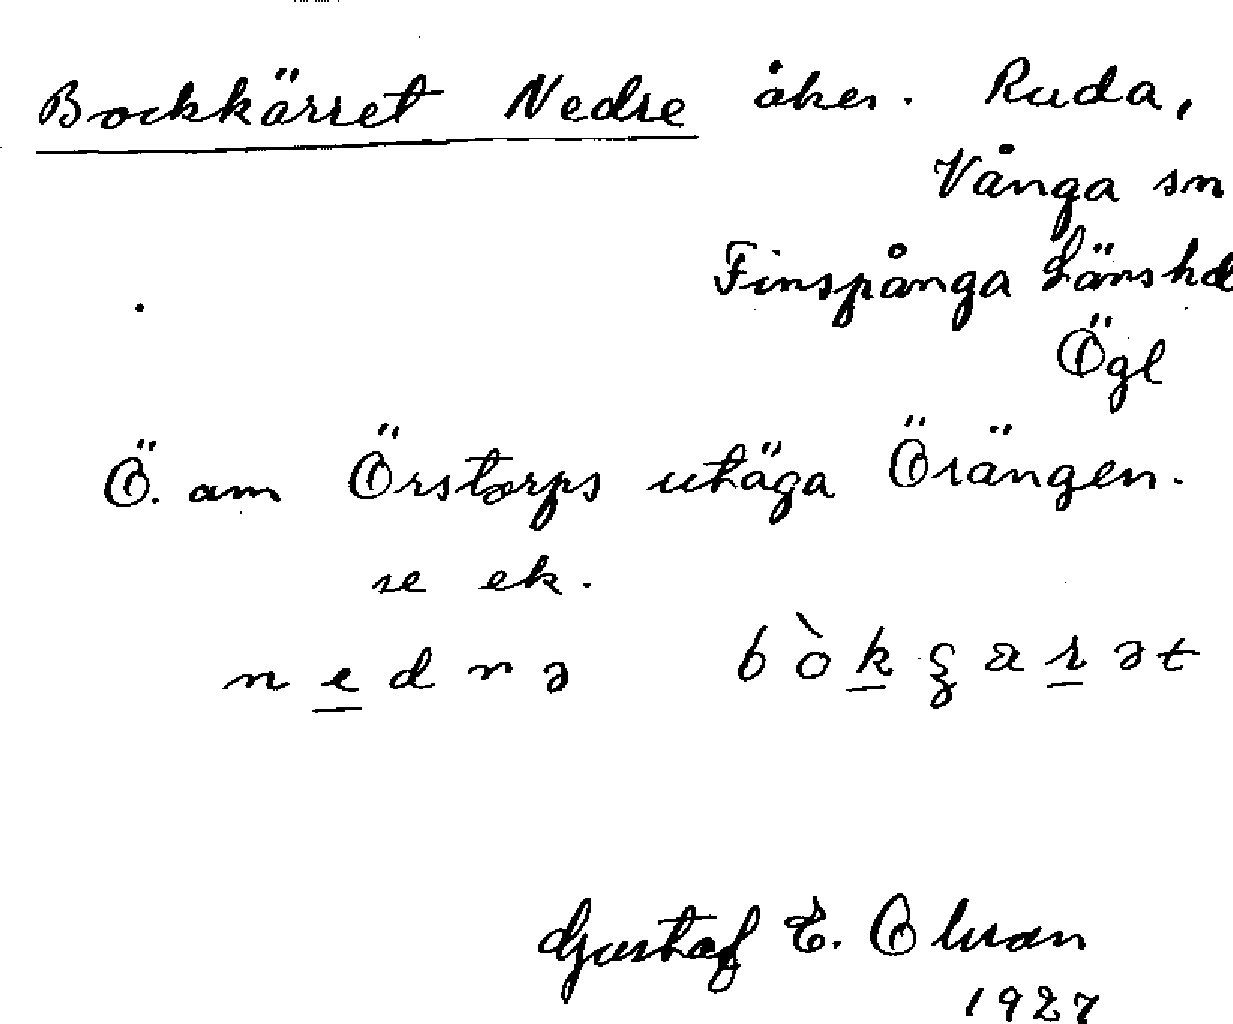 Bockkärret Nedre åker. Ruda,
Vånga sn
Finspånga Länshd
Ögl
Ö. om Örstorps utäga Örängen.
se ek.
nednə
Gustaf E.
1927